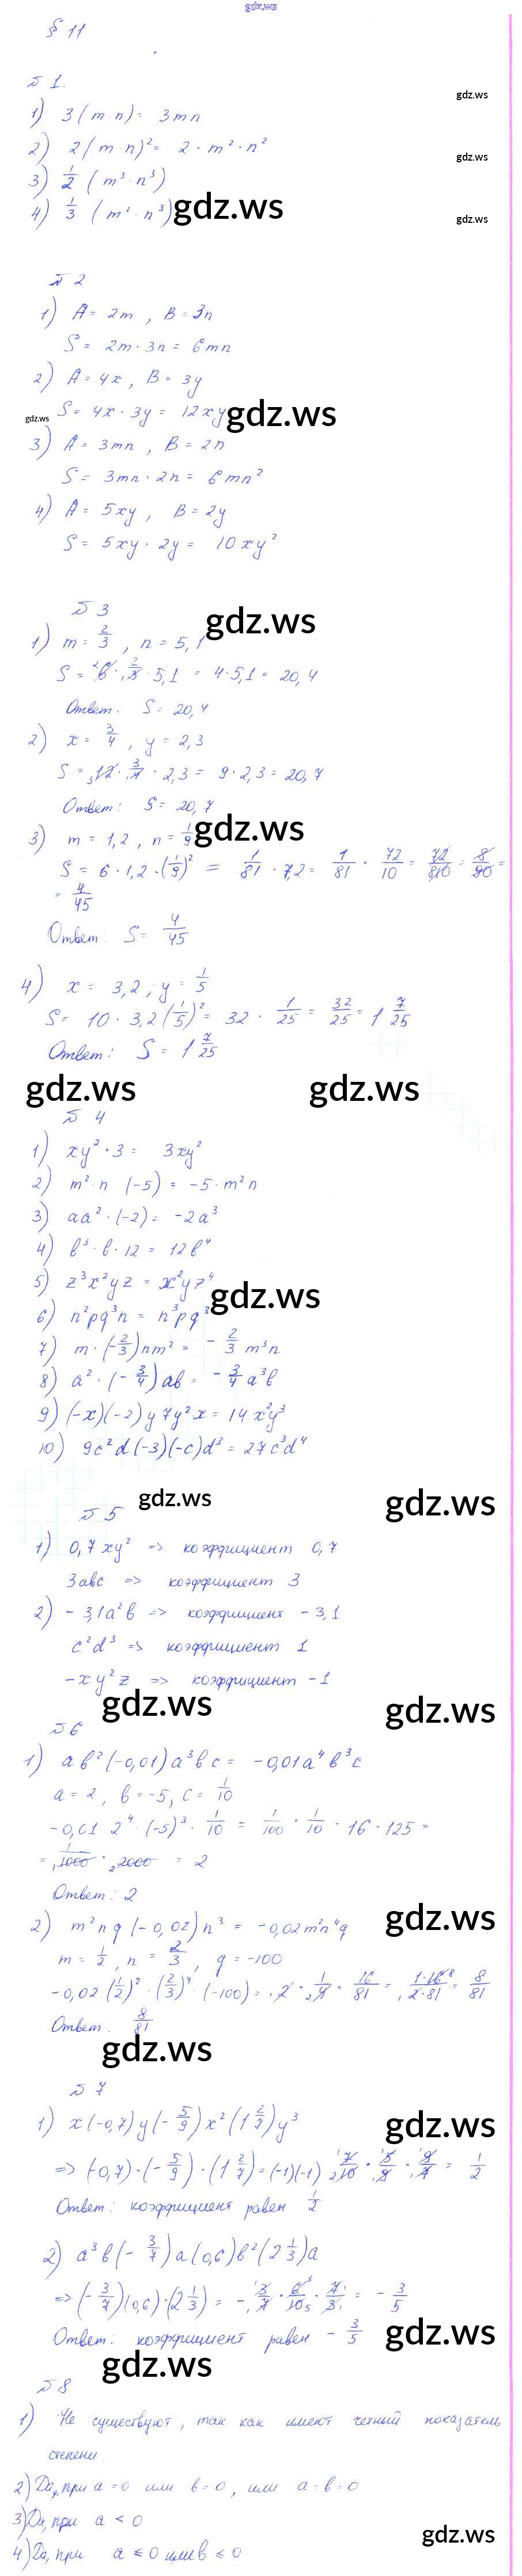 gdz.ws
§ 11
№ 1.
gdz.ws
1) 3(m·n) = 3mn
2) 2(m·n)² = 2·m²·n²
gdz.ws
3) 1/2 (m³·n³)
4) 1/3 (m²·n³) gdz.ws
gdz.ws
№ 2
1) A = 2m, B = 3n
S = 2m·3n = 6mn
2) A = 4x, B = 3y
S = 4x·3y = 12xy gdz.ws
gdz.ws
3) A = 3mn, B = 2n
S = 3mn·2n = 6mn²
4) A = 5xy, B = 2y
S = 5xy·2y = 10xy²
№ 3 gdz.ws
1) m = 2/3, n = 5,1
S = 6·2/3·5,1 = 4·5,1 = 20,4
Ответ. S = 20,4
2) x = 3/4, y = 2,3
S = 12·3/4·2,3 = 9·2,3 = 20,7
Ответ: S = 20,7
3) m = 1,2, n = 1/9 gdz.ws
S = 6·1,2·(1/9)² = 1/81·7,2 = 1/81·72/10 = 72/810 = 8/90 =
= 4/45
Ответ: S = 4/45
4) x = 3,2, y = 1/5
S = 10·3,2(1/5)² = 32·1/25 = 32/25 = 1 7/25
Ответ: S = 1 7/25
gdz.ws gdz.ws
№ 4
1) xy²·3 = 3xy²
2) m²·n (-5) = -5·m²n
3) aa²·(-2) = -2a³
4) b³·b·12 = 12b⁴
5) z³x²yz = x²yz⁴
gdz.ws
6) n²pq³n = n³pq³
7) m·(-2/3)nm² = -2/3 m³n
8) a²·(-3/4)ab = -3/4 a³b
9) (-x)(-2)y7y²x = 14x²y³
10) 9c²d(-3)(-c)d³ = 27c³d⁴
gdz.ws gdz.ws
№ 5
1) 0,7xy² => коэффициент 0,7
3abc => коэффициент 3
2) -3,1a²b => коэффициент -3,1
c²d³ => коэффициент 1
-xy²z => коэффициент -1
gdz.ws gdz.ws
№ 6
1) ab²(-0,01)a³bc = -0,01a⁴b³c
a = 2, b = -5, c = 1/10
-0,01 2⁴·(-5)³·1/10 = 1/100·1/10·16·125 =
= 1/1000·2000 = 2
Ответ: 2
gdz.ws
2) m²nq(-0,02)n³ = -0,02m²n⁴q
m = 1/2, n = 2/3, q = -100
-0,02(1/2)²·(2/3)⁴·(-100) = 2·1/4·16/81 = 1·16/2·81 = 8/81
Ответ: 8/81
gdz.ws
№ 7
gdz.ws
1) x(-0,7)y(-5/9)x²(1 2/7)y³
=> (-0,7)·(-5/9)·(1 2/7) = (-1)(-1) 7/10·5/9·9/7 = 1/2
Ответ: коэффициент равен 1/2
2) a³b(-3/7)a(0,6)b²(2 1/3)a
=> (-3/7)(0,6)·(2 1/3) = -3/7·6/10·7/3 = -3/5
Ответ: коэффициент равен -3/5
gdz.ws
gdz.ws
№ 8
1) Не существуют, так как имеют четный показатель
степени.
2) Да, при a = 0 или b = 0, или a = b = 0
3) Да, при a < 0
gdz.ws
4) Да, при a ≤ 0 или b ≤ 0